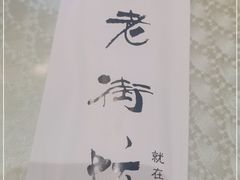 老街
就在